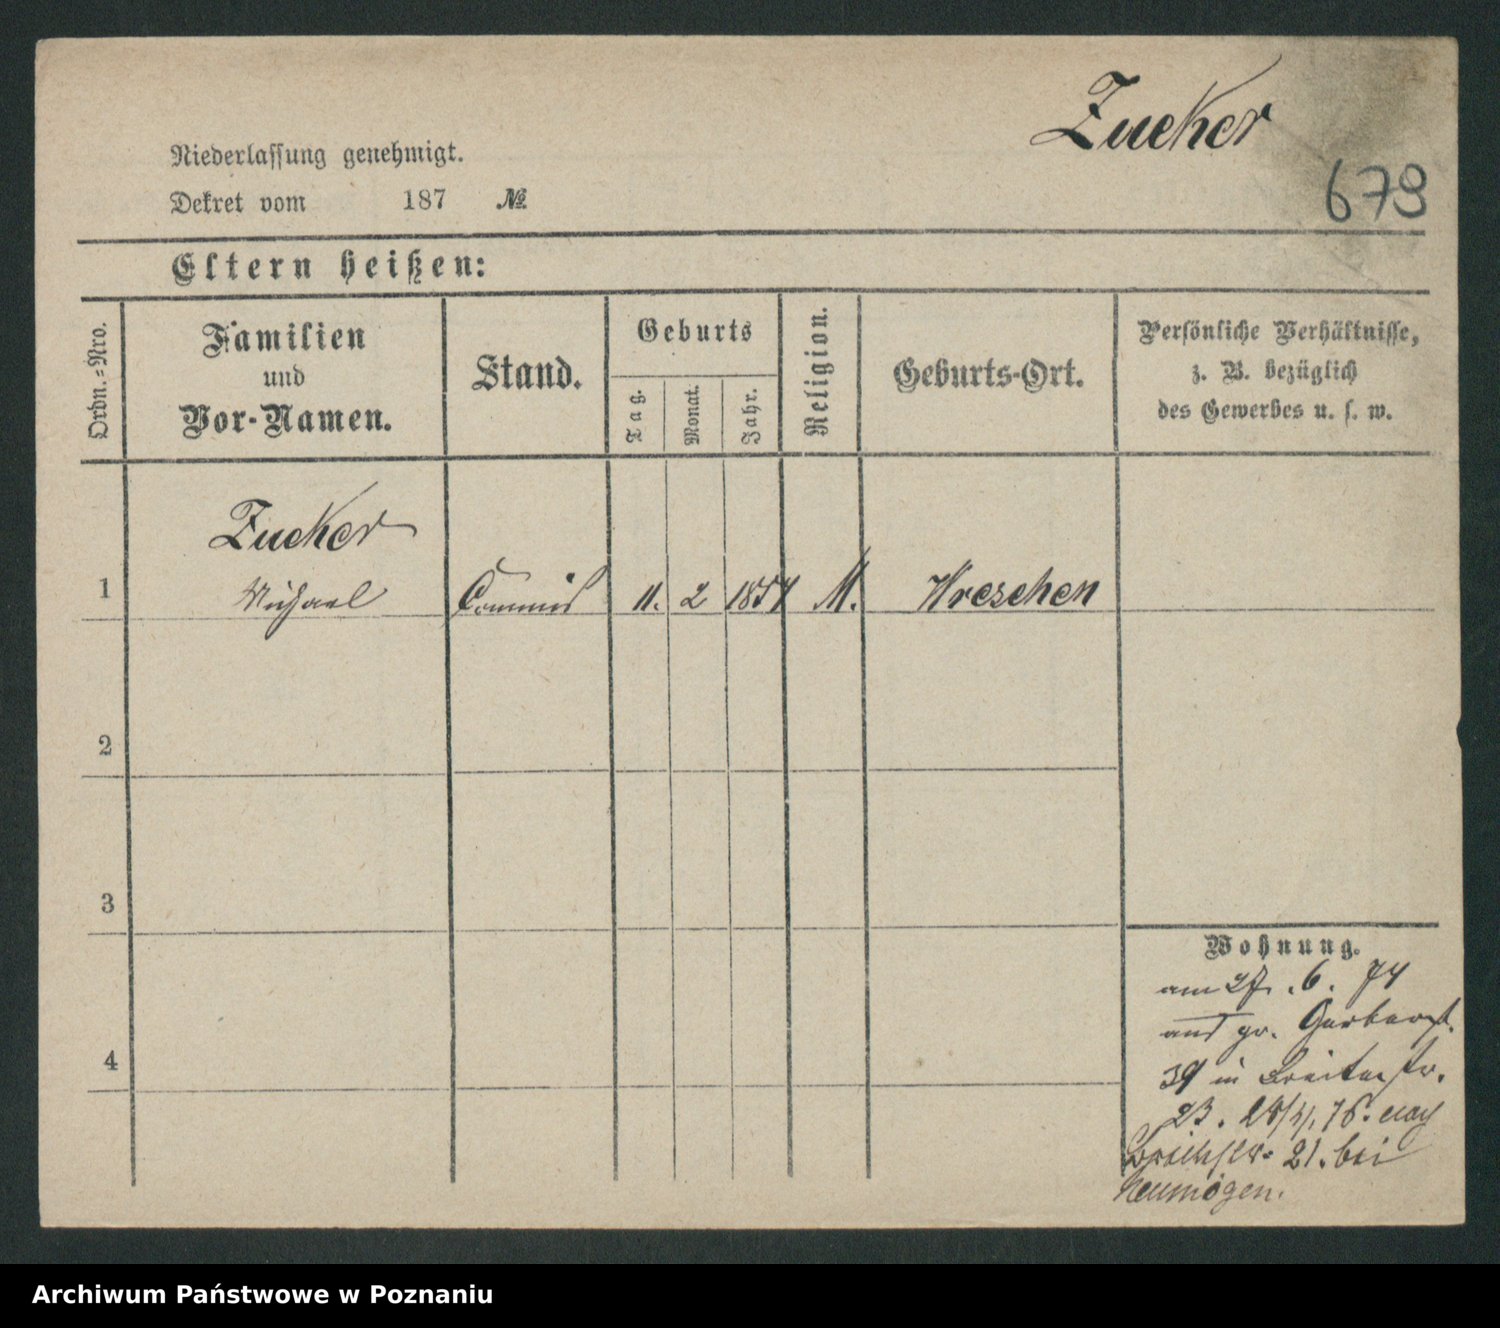 Zucker
679
Niederlassung genehmigt.
Dekret vom 187 №
Eltern heißen:
Ordn.=Nro.
Familien
und
Vor-Namen.
Stand.
Geburts
Tag.
Monat.
Jahr.
Religion.
Geburts-Ort.
Persönliche Verhältnisse,
z. B. bezüglich
des Gewerbes u. s. w.
Zucker
1 Michael Commis 11. 2 1857 M. Wreschen
2
3
4
Wohnung.
am 27. 6. 74
aus gr. Gerberst.
39 in Breitestr.
23. 76. nach
21. bei
Neumögen.
Archiwum Państwowe w Poznaniu